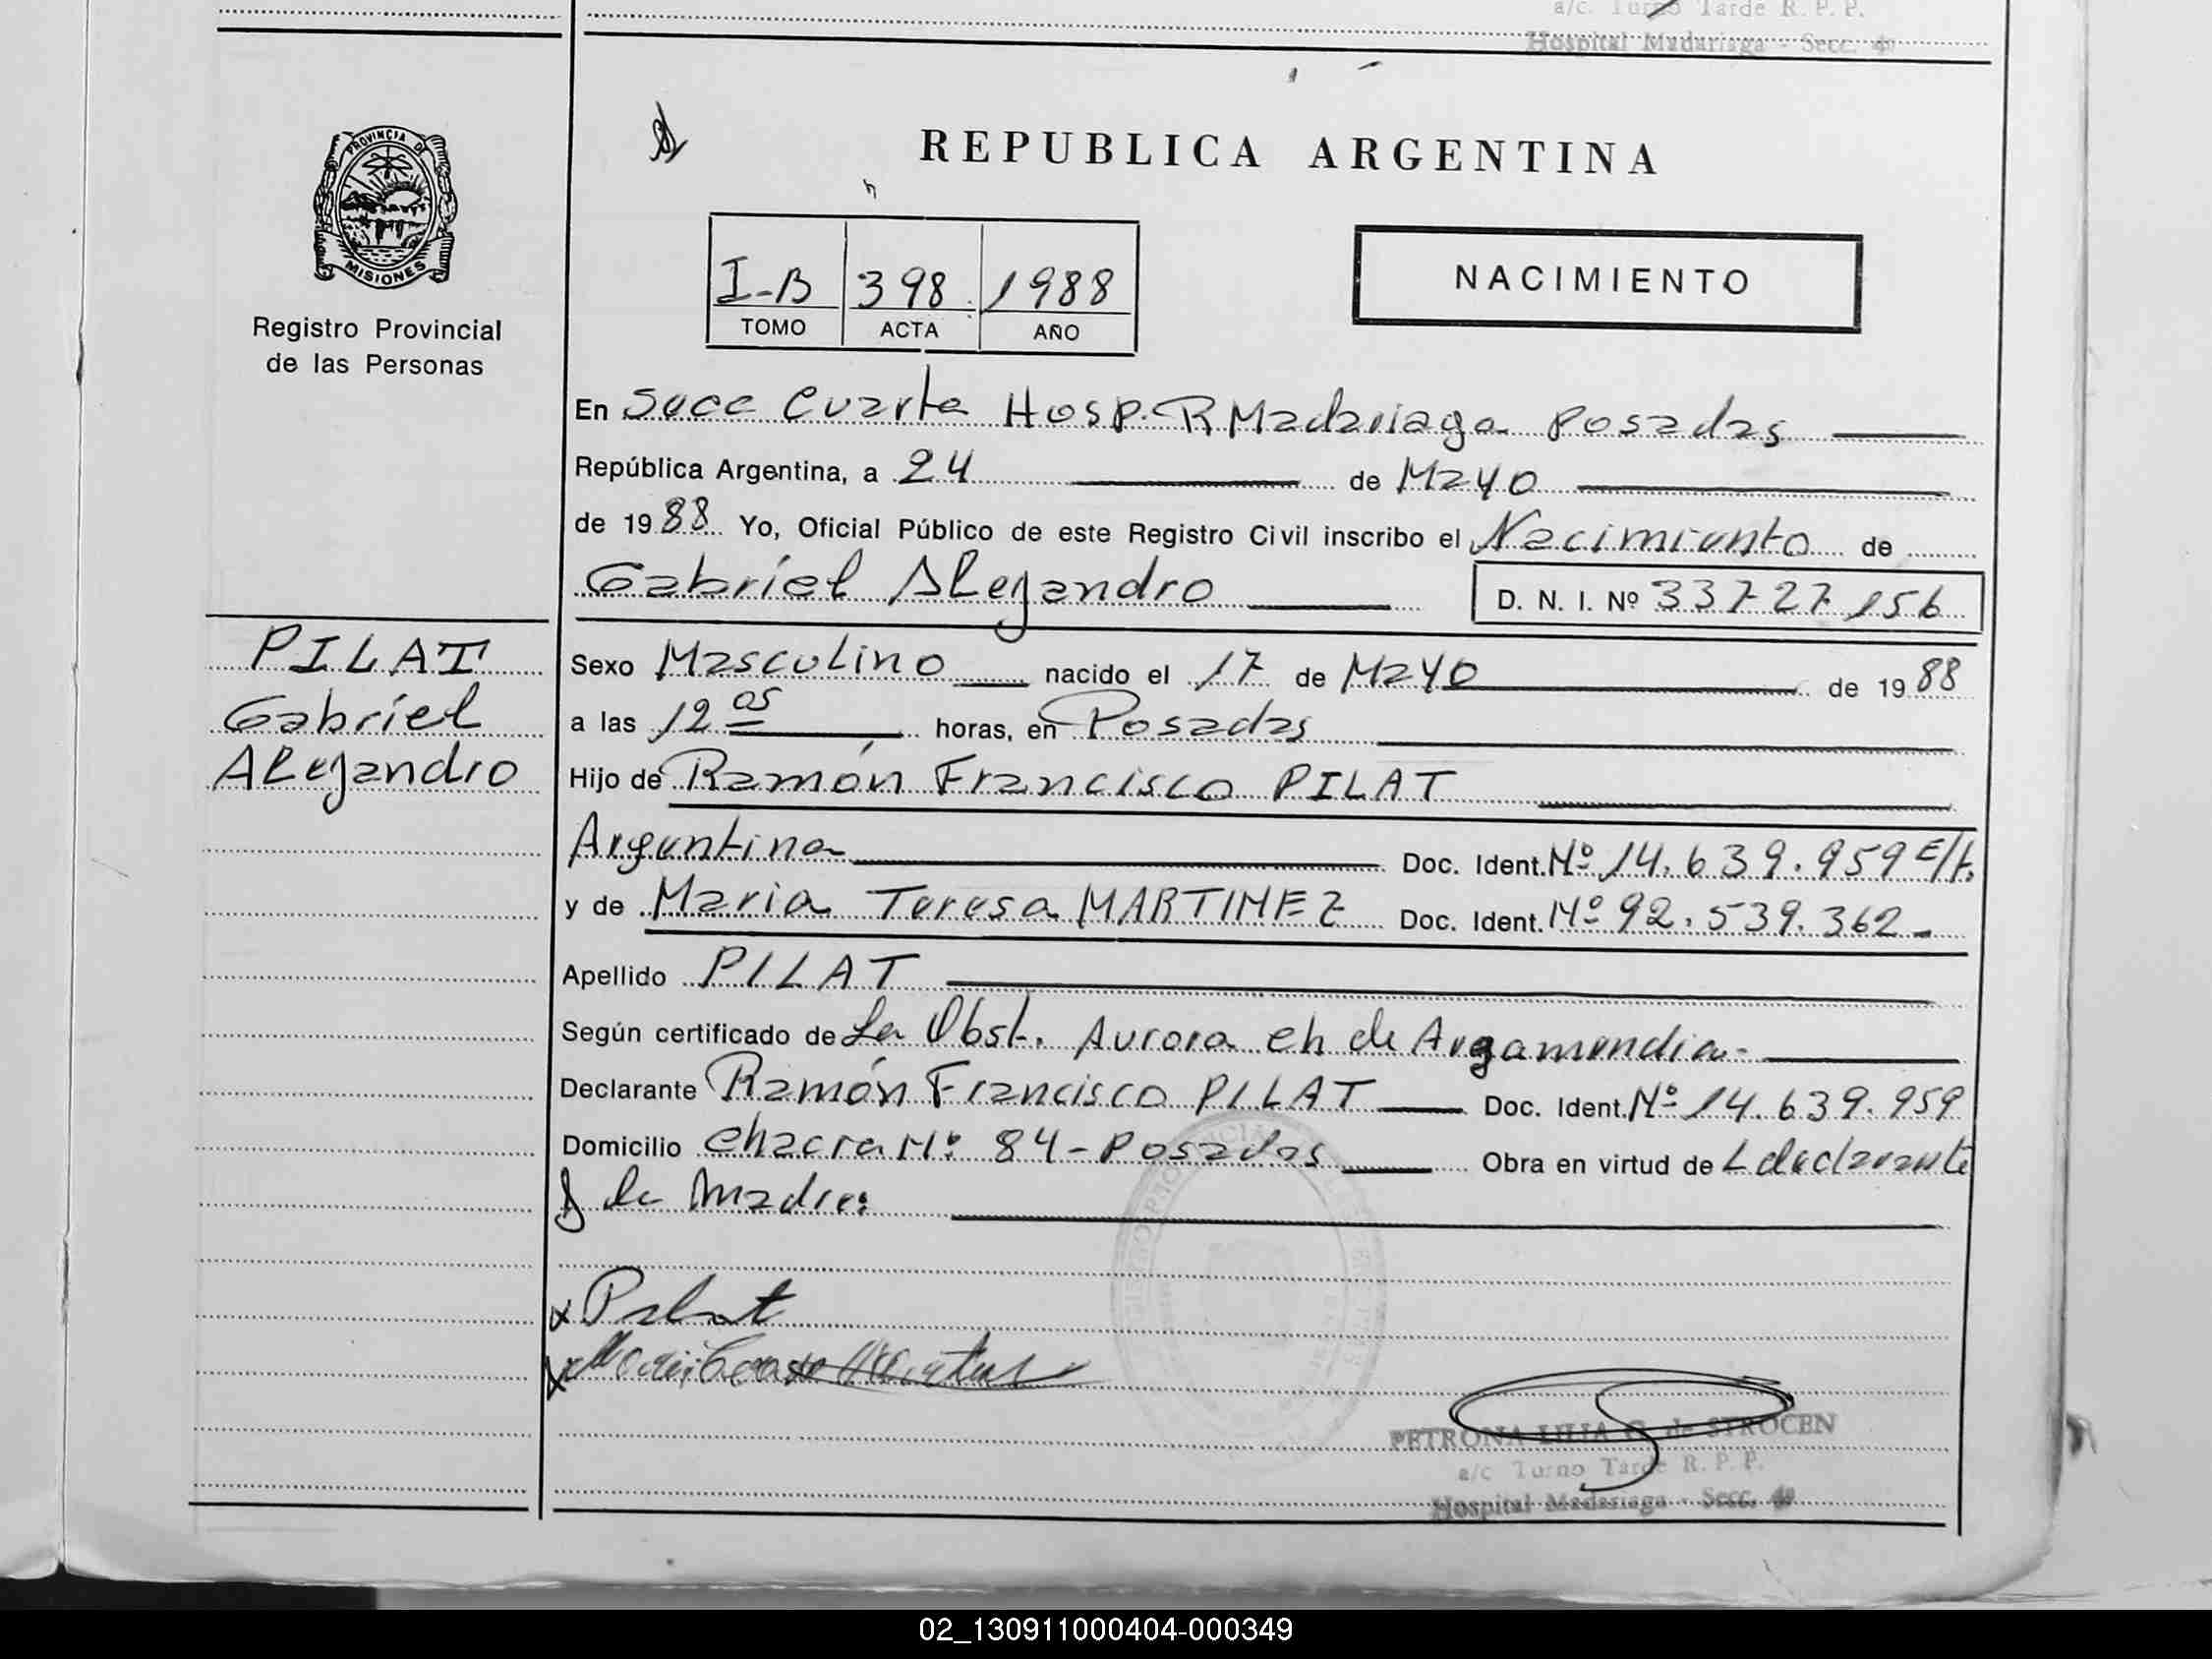 a/c. Turno Tarde R. P. P.
Hospital Madariaga - Secc. 4º
PROVINCIA DE
MISIONES
Registro Provincial
de las Personas
REPUBLICA ARGENTINA
I-B 398 1988
TOMO ACTA AÑO
NACIMIENTO
En Secc Cuarta Hosp. R Madariaga Posadas
República Argentina, a 24 de Mayo
de 1988 Yo, Oficial Público de este Registro Civil inscribo el Nacimiento de
Gabriel Alejandro D. N. I. Nº 33727156
PILAT
Gabriel
Alejandro
Sexo Masculino nacido el 17 de Mayo de 1988
a las 12 05 horas, en Posadas
Hijo de Ramón Francisco PILAT
Argentina Doc. Ident. Nº 14.639.959 E/t.
y de Maria Teresa MARTINEZ Doc. Ident. Nº 92.539.362-
Apellido PILAT
Según certificado de La Obst. Aurora ch de Argamendia-
Declarante Ramón Francisco PILAT Doc. Ident. Nº 14.639.959
Domicilio Chacra Nº 84-Posadas Obra en virtud de L declarante
y la Madre:
x Pilat
PETRONA LILIA G. de STROCEN
a/c Turno Tarde R. P. P.
Hospital Madariaga - Secc. 4º
02_130911000404-000349